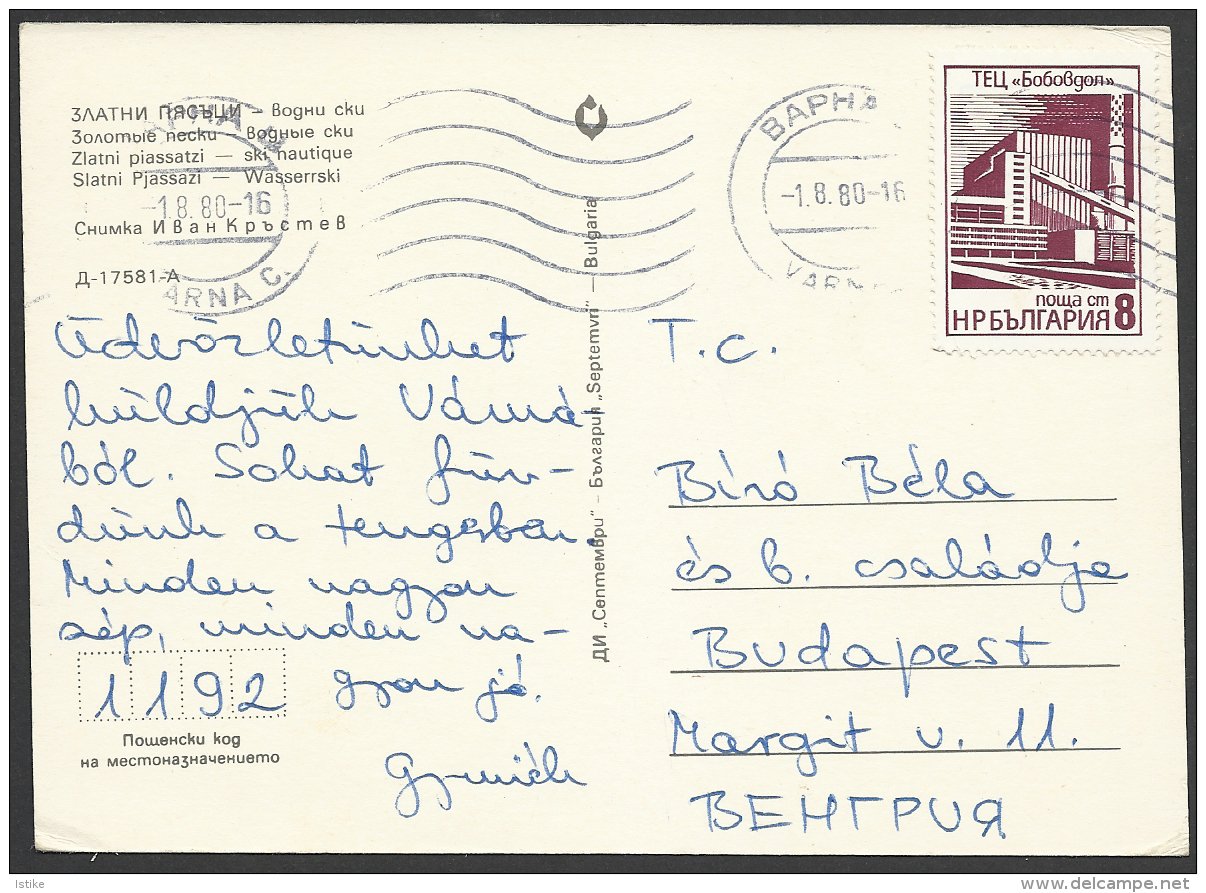 ЗЛАТНИ ПЯСЪЦИ – Водни ски
Золотые пески – Водные ски
Zlatni piassatzi — ski nautique
Slatni Pjassazi — Wasserrski
Снимка Иван Кръстев
Д-17581-А
ВАРНА
-1.8.80-16
ARNA C.
ВАРНА
-1.8.80-16
VARN
ТЕЦ «Бобовдол»
поща ст 8
НРБЪЛГАРИЯ
ДИ „Септември" – България „Septemvri" — Bulgaria
Üdvözletünket
küldjük Várná-
ból. Sokat für-
dünk a tengerben.
Minden nagyon
szép, minden na-
gyon jó.
1192
Пощенски код
на местоназначението
T.c.
Bíró Béla
és b. családja
Budapest
Margit u. 11.
ВЕНГРИЯ
Istike
delcampe.net